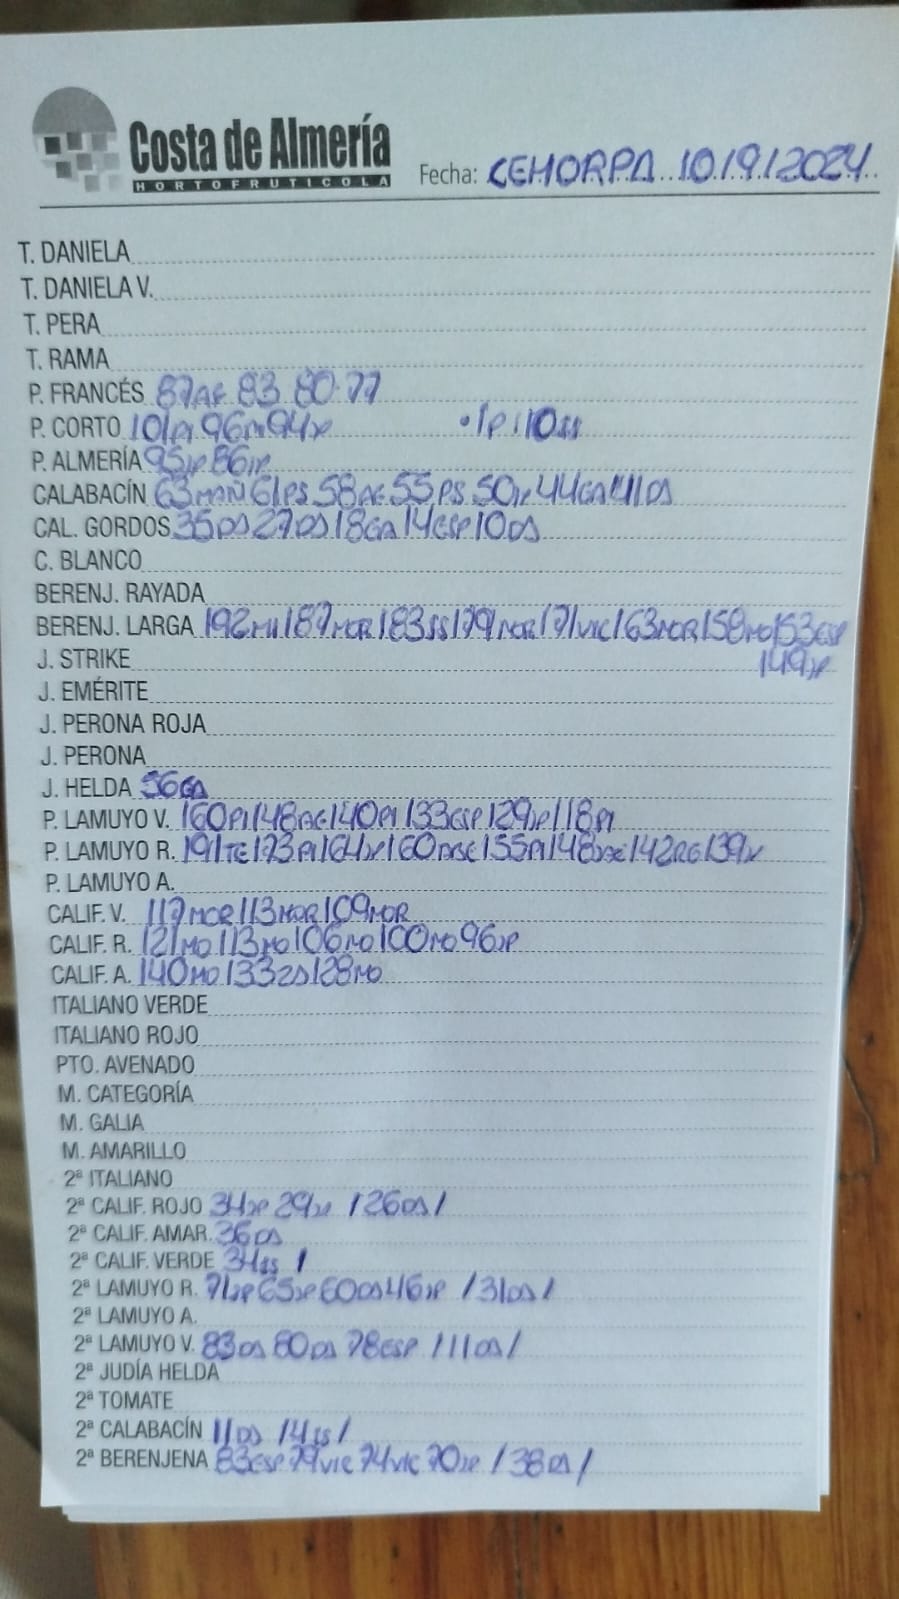 Costa de Almería
HORTOFRUTICOLA
Fecha: CEHORPA 10/9/2024
T. DANIELA
T. DANIELA V.
T. PERA
T. RAMA
P. FRANCÉS 87AG 83 80 77
P. CORTO 101PI 96M 94JP • 1P: 110SS
P. ALMERÍA 95JP 86JP
CALABACÍN 63MAÑ 61PS 58AG 55PS 50JP 44GA 41DS
CAL. GORDOS 35DS 27DS 18GA 14ESP 10DS
C. BLANCO
BERENJ. RAYADA
BERENJ. LARGA 192MU 187MOR 183SS 179MOR 171VIC 163MOR 158MO 153ESP
J. STRIKE 149JP
J. EMÉRITE
J. PERONA ROJA
J. PERONA
J. HELDA 56GA
P. LAMUYO V. 160PI 148AG 140PI 133ESP 129JP 118PI
P. LAMUYO R. 191TE 173PI 164JV 160 155PI 148 142RG 139JV
P. LAMUYO A.
CALIF. V. 117MOR 113MOR 109MOR
CALIF. R. 121MO 113MO 106MO 100MO 96JP
CALIF. A. 140MO 133ZD 128MO
ITALIANO VERDE
ITALIANO ROJO
PTO. AVENADO
M. CATEGORÍA
M. GALIA
M. AMARILLO
2ª ITALIANO
2ª CALIF. ROJO 34JP 29JV /26DS/
2ª CALIF. AMAR. 36DS
2ª CALIF. VERDE 34SS /
2ª LAMUYO R. 71JP 65JP 60DS 46JP /31DS/
2ª LAMUYO A.
2ª LAMUYO V. 83DS 80DS 78ESP /11DS/
2ª JUDÍA HELDA
2ª TOMATE
2ª CALABACÍN 11DS /4SS/
2ª BERENJENA 83ESP 79VIC 74VIC 70JP /38DS/